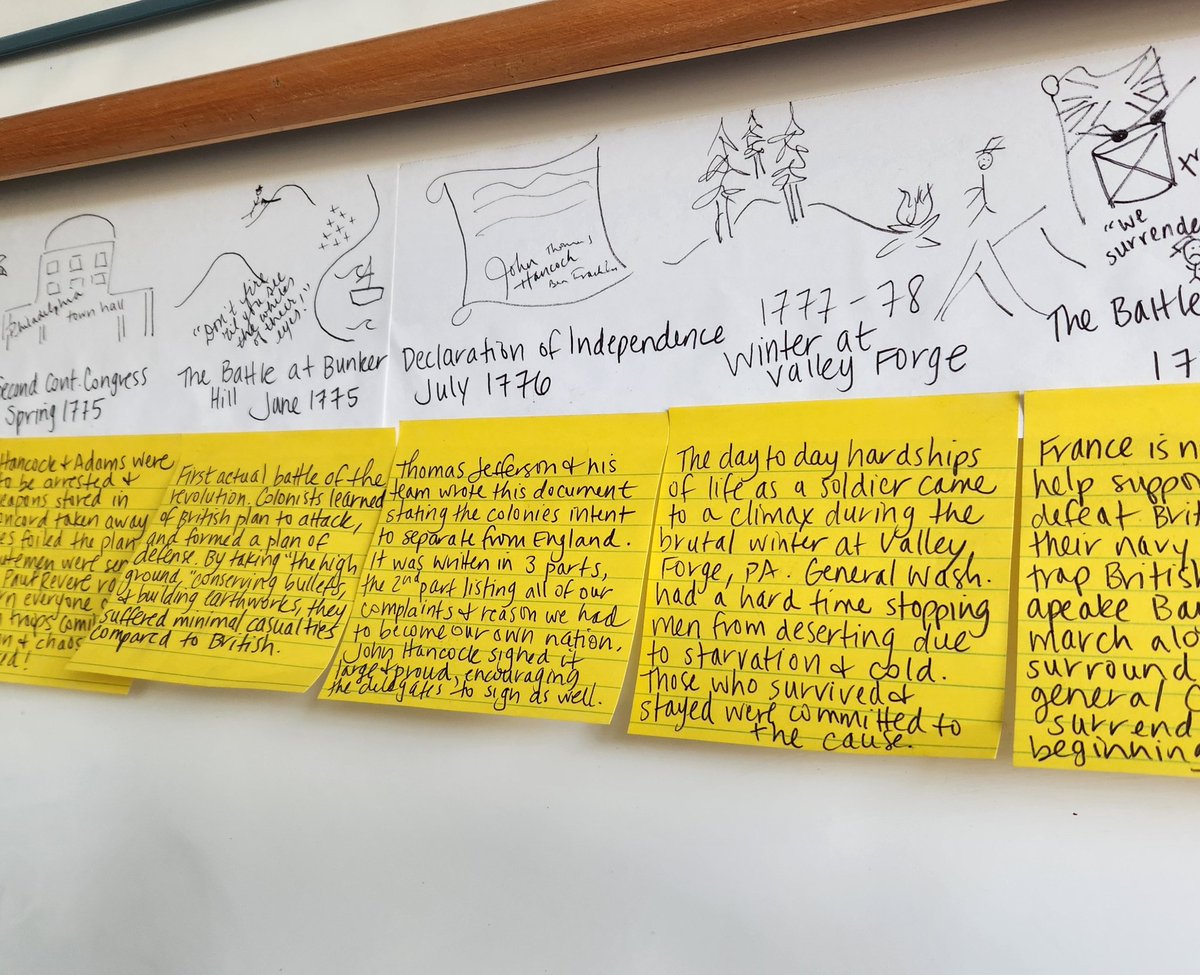 Philadelphia
town hall
Second Cont. Congress
Spring 1775
"Don't fire
'til you see
the whites
of their
eyes!"
The Battle at Bunker
Hill June 1775
John Hancock
Thomas
Ben Franklin
Declaration of Independence
July 1776
1777-78
Winter at
Valley Forge
"We
surrende
The Battle
17
Hancock & Adams were
to be arrested &
eapons stored in
oncord taken away
es foiled the plan
utemen were sen
Paul Revere ro
rn everyone
troops comi
n & chaos
d!
First actual battle of the
revolution. Colonists learned
of British plan to attack,
and formed a plan of
defense. By taking "the high
ground," conserving bullets,
& building earthworks, they
suffered minimal casualties
compared to British.
Thomas Jefferson & his
team wrote this document
stating the colonies intent
to separate from England.
It was written in 3 parts,
the 2nd part listing all of our
complaints & reason we had
to become our own nation.
John Hancock signed it
large & proud, encouraging
the delegates to sign as well.
The day to day hardships
of life as a soldier came
to a climax during the
brutal winter at Valley
Forge, PA. General Wash.
had a hard time stopping
men from deserting due
to starvation & cold.
Those who survived &
stayed were committed to
the cause.
France is n
help suppo
defeat Bri
their navy
trap British
apeake Ba
march alo
surround
general C
surrend
beginnin